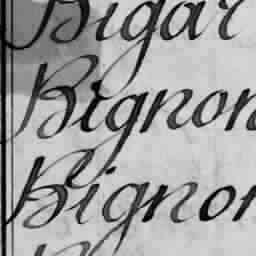 Bigar
Bignon
Bignon